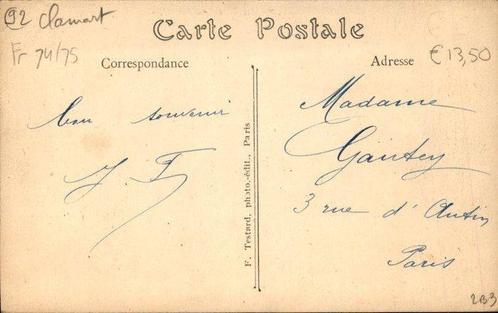 92 Clamart
Fr 74/75
Carte Postale
Correspondance
Adresse
€ 13,50
Bon souvenir
J. F.
F. Testard, photo.-édit., Paris
Madame
Gautey
3 rue d'Antin
Paris
2B3